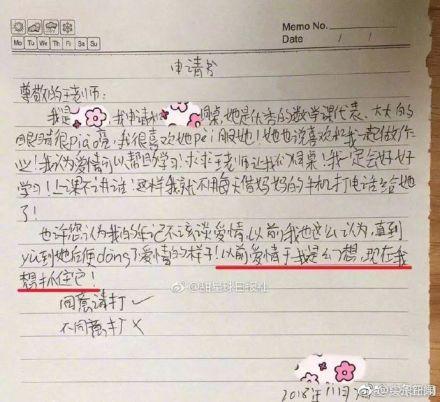 Memo No.
Mo Tu We Th Fr Sa Su
Date / /
申请书
尊敬的王老师:
我是 ,我申请和 同桌,她是优秀的数学课代表、大大的
眼睛很piao亮,我很喜欢她pei服她!她也说喜欢和我一起做作
业!我认为爱情可以帮助学习!求求王老师让我们同桌!我一定会好好
学习!上课不讲话!这样我就不用每天借妈妈的手机打电话给她
了!
也许您认为我的年记不该谈爱情,以前我也这么认为,直到
yu到她后便dong了爱情的样子!以前爱情于我是幻想,现在我
想抓住它!
@甜星球日报社
同意请打✓
不同意打✗
2018年11月